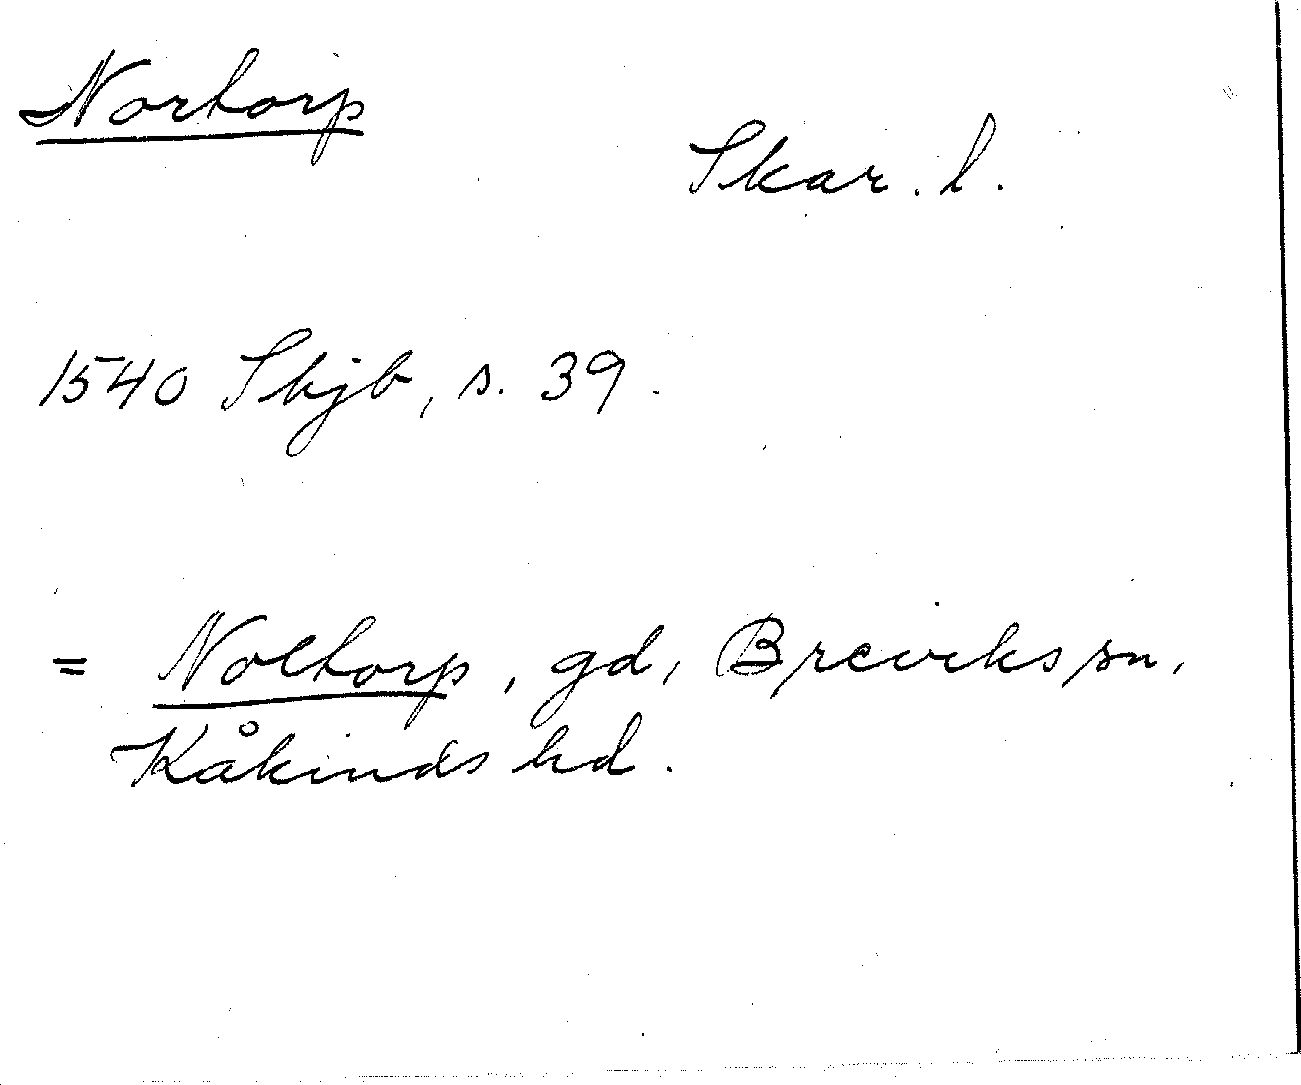 Nortorp
Skar. l.
1540 Skjb, s. 39.
= Noltorp, gd, Breviks sn,
Kåkinds hd.